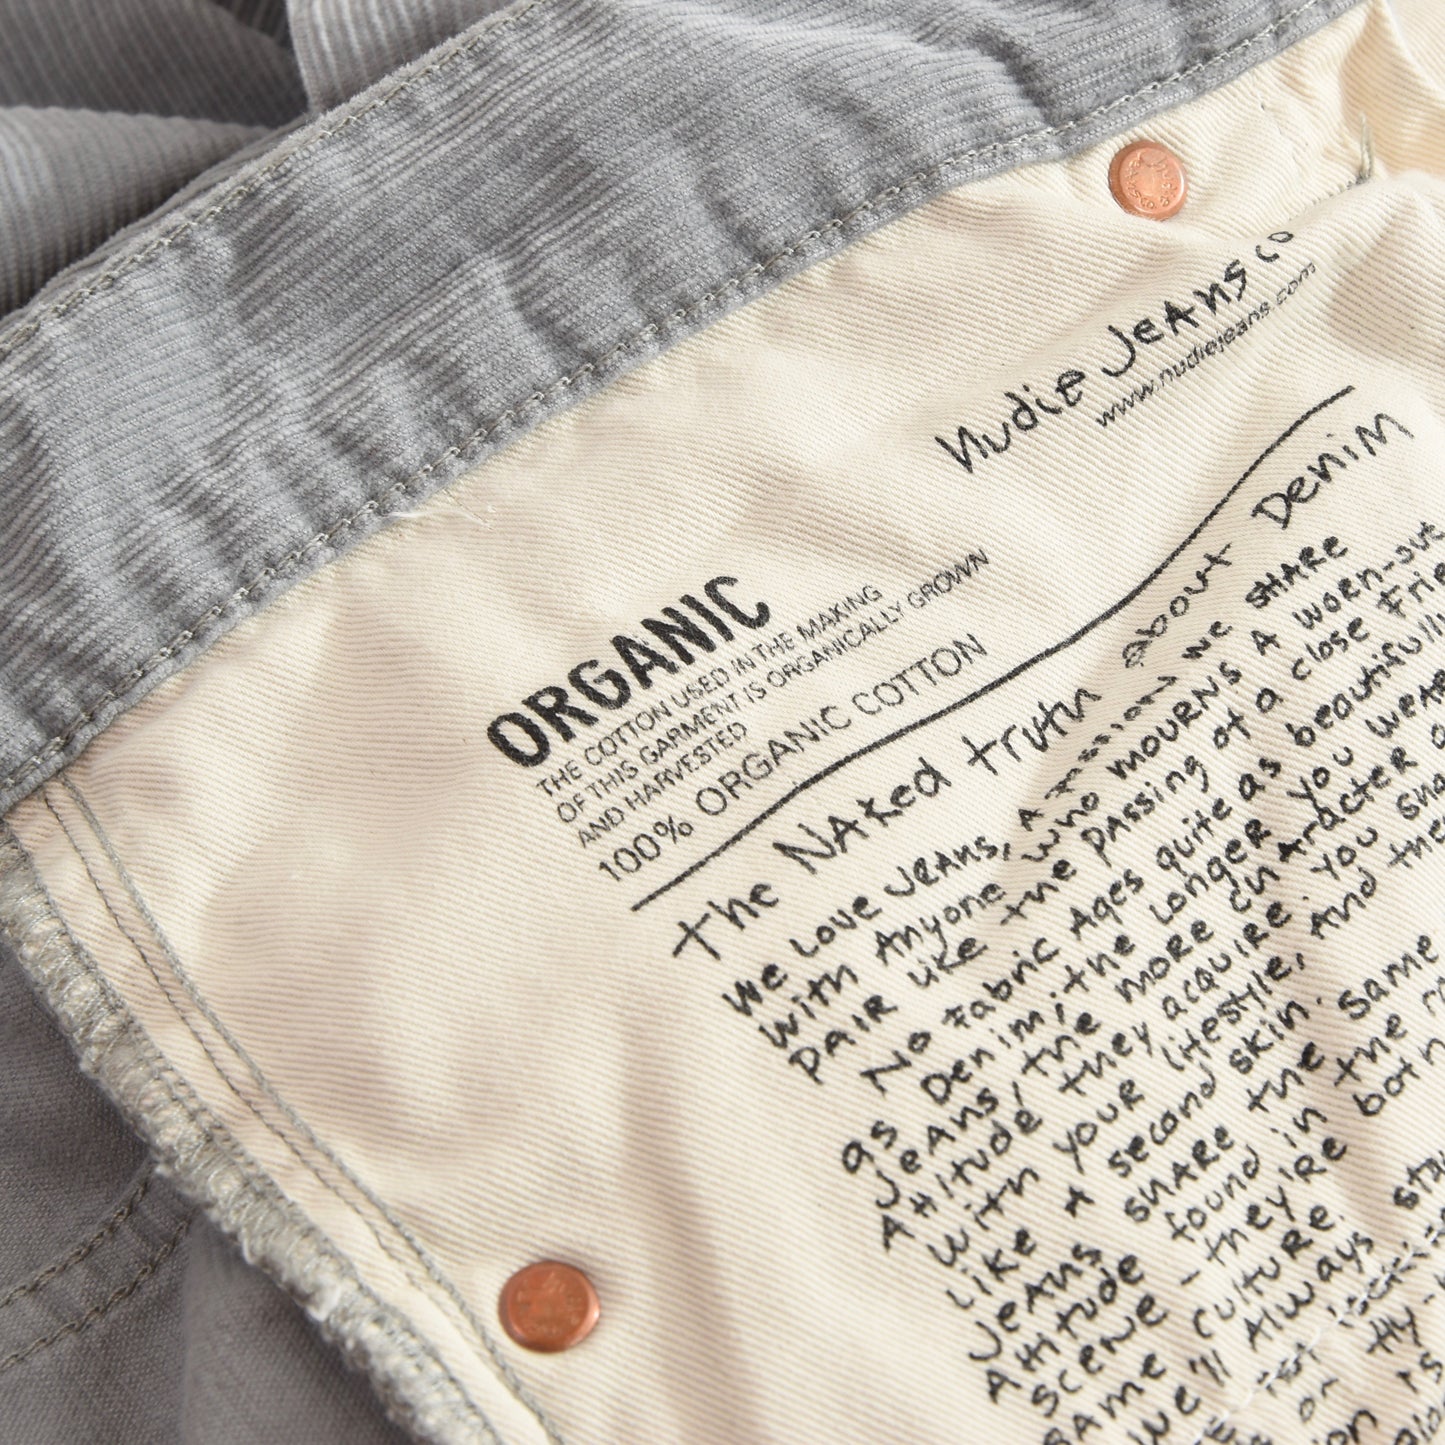 Nudie Jeans co
www.nudiejeans.com
ORGANIC
THE COTTON USED IN THE MAKING
OF THIS GARMENT IS ORGANICALLY GROWN
AND HARVESTED
100% ORGANIC COTTON
The Naked truth about Denim
We Love Jeans, A passion we share
with Anyone who mourns A worn-out
pair like the passing of a close Frie
No Fabric Ages quite as beautifully
as Denim; the Longer you wear
Jeans, the more character a
Attitude they acquire. you sha
with your lifestyle, And the
Like A second skin.
Jeans share the same
Attitude found in the ro
scene - they're both
same culture.
We'll Always sta
or
is